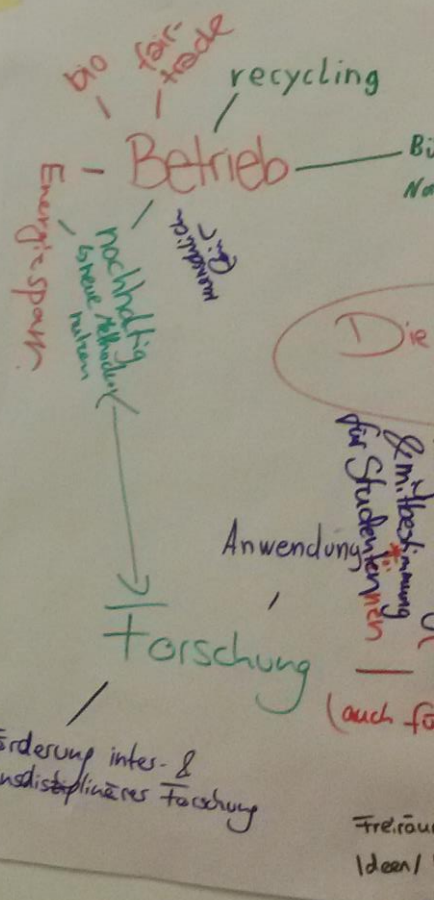 bio
fair-
trade
recycling
Betrieb
nachhaltig
nutzen
menschlich
Die
& mitbestimmung
für Studentinnen
Anwendung
Forschung
(auch fü
örderung inter- &
nsdisziplinäres Forschung
Freiräu
Ideen/